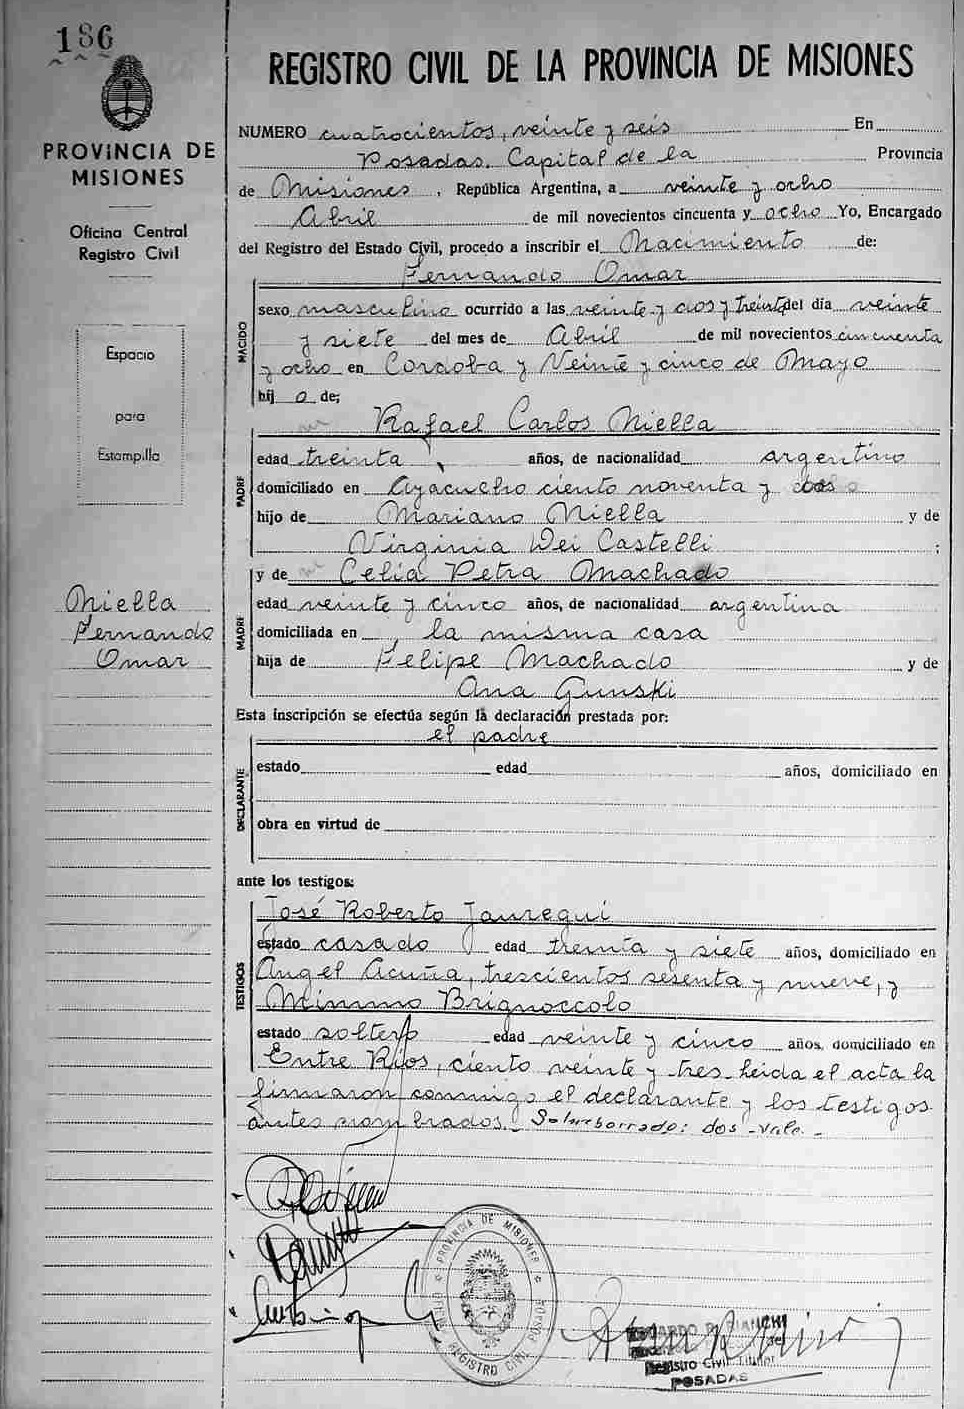 186
PROVINCIA DE
MISIONES
Oficina Central
Registro Civil
Espacio
para
Estampilla
Niella
Fernando
Omar
REGISTRO CIVIL DE LA PROVINCIA DE MISIONES
NUMERO cuatrocientos, veinte y seis En
Posadas. Capital de la Provincia
de Misiones, República Argentina, a veinte y ocho
Abril de mil novecientos cincuenta y ocho Yo, Encargado
del Registro del Estado Civil, procedo a inscribir el Nacimiento de:
Fernando Omar
NACIDO
sexo masculino ocurrido a las veinte y dos y treinta del día veinte
y siete del mes de Abril de mil novecientos cincuenta
y ocho en Cordoba y Veinte y cinco de Mayo
hij o de;
Rafael Carlos Niella
PADRE
edad treinta, años, de nacionalidad argentino
domiciliado en Ayacucho ciento noventa y dos
hijo de Mariano Niella y de
Virginia Dei Castelli ;
y de Celia Petra Machado
MADRE
edad veinte y cinco años, de nacionalidad argentina
domiciliada en , la misma casa
hija de Felipe Machado y de
Ana Gunski
Esta inscripción se efectúa según la declaración prestada por:
el padre
DECLARANTE
estado edad años, domiciliado en
obra en virtud de
ante los testigos:
José Roberto Jauregui
TESTIGOS
estado casado edad treinta y siete años, domiciliado en
Angel Acuña, trescientos sesenta y nueve, y
Mimmo Brignoccolo
estado soltero edad veinte y cinco años, domiciliado en
Entre Ríos, ciento veinte y tres. Leida el acta la
firmaron conmigo el declarante y los testigos
antes nombrados. Sobreborrado: dos - vale. -
PROVINCIA DE MISIONES
REGISTRO CIVIL POSADAS
Registro Civil
POSADAS